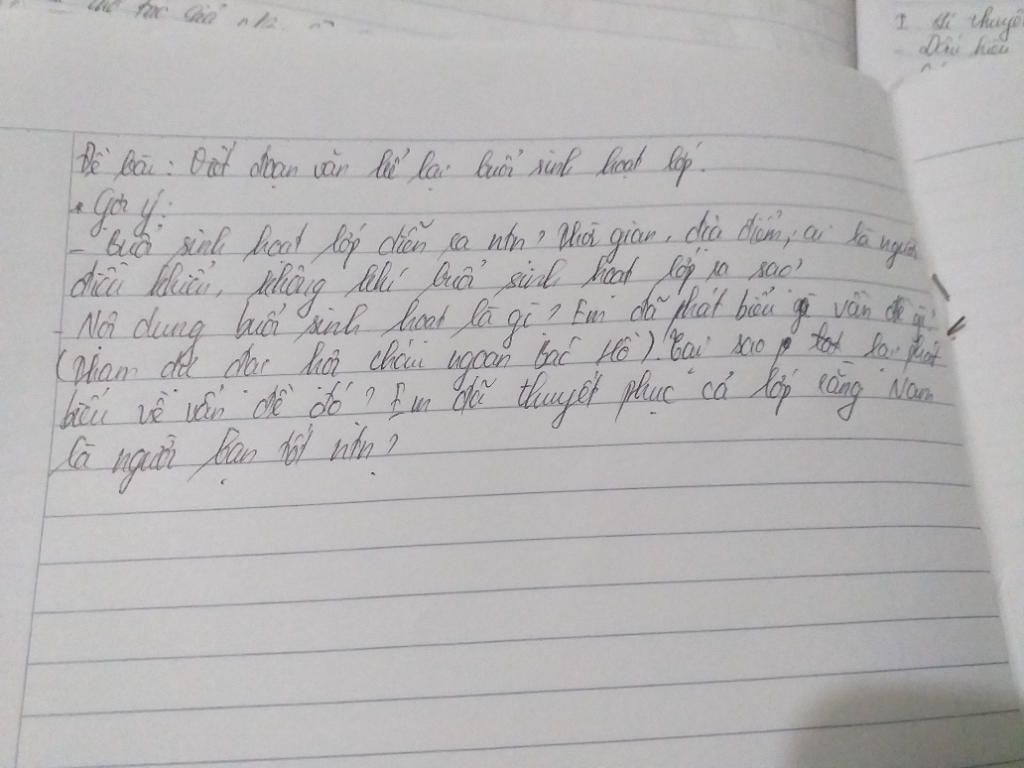 Đề bài: Viết đoạn văn kể lại buổi sinh hoạt lớp.
* Gợi ý:
- Buổi sinh hoạt lớp diễn ra ntn? Thời gian, địa điểm, ai là người
điều khiển, không khí buổi sinh hoạt lớp ra sao?
- Nội dung buổi sinh hoạt là gì? Em đã phát biểu gì vấn đề gì?
(Tham đại hội cháu ngoan Bác Hồ). Tại sao lại phát
biểu về vấn đề đó? Em đã thuyết phục cả lớp rằng Nam
là người bạn tốt ntn?
I Lí thuyết
- Dấu hiệu